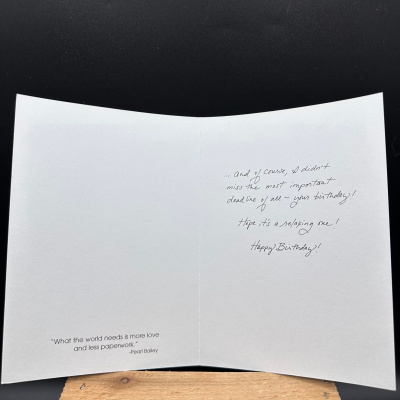 "What the world needs is more love
and less paperwork."
-Pearl Bailey
... and of course, I didn't
miss the most important
deadline of all – your birthday!
Hope it's a relaxing one!
Happy Birthday!